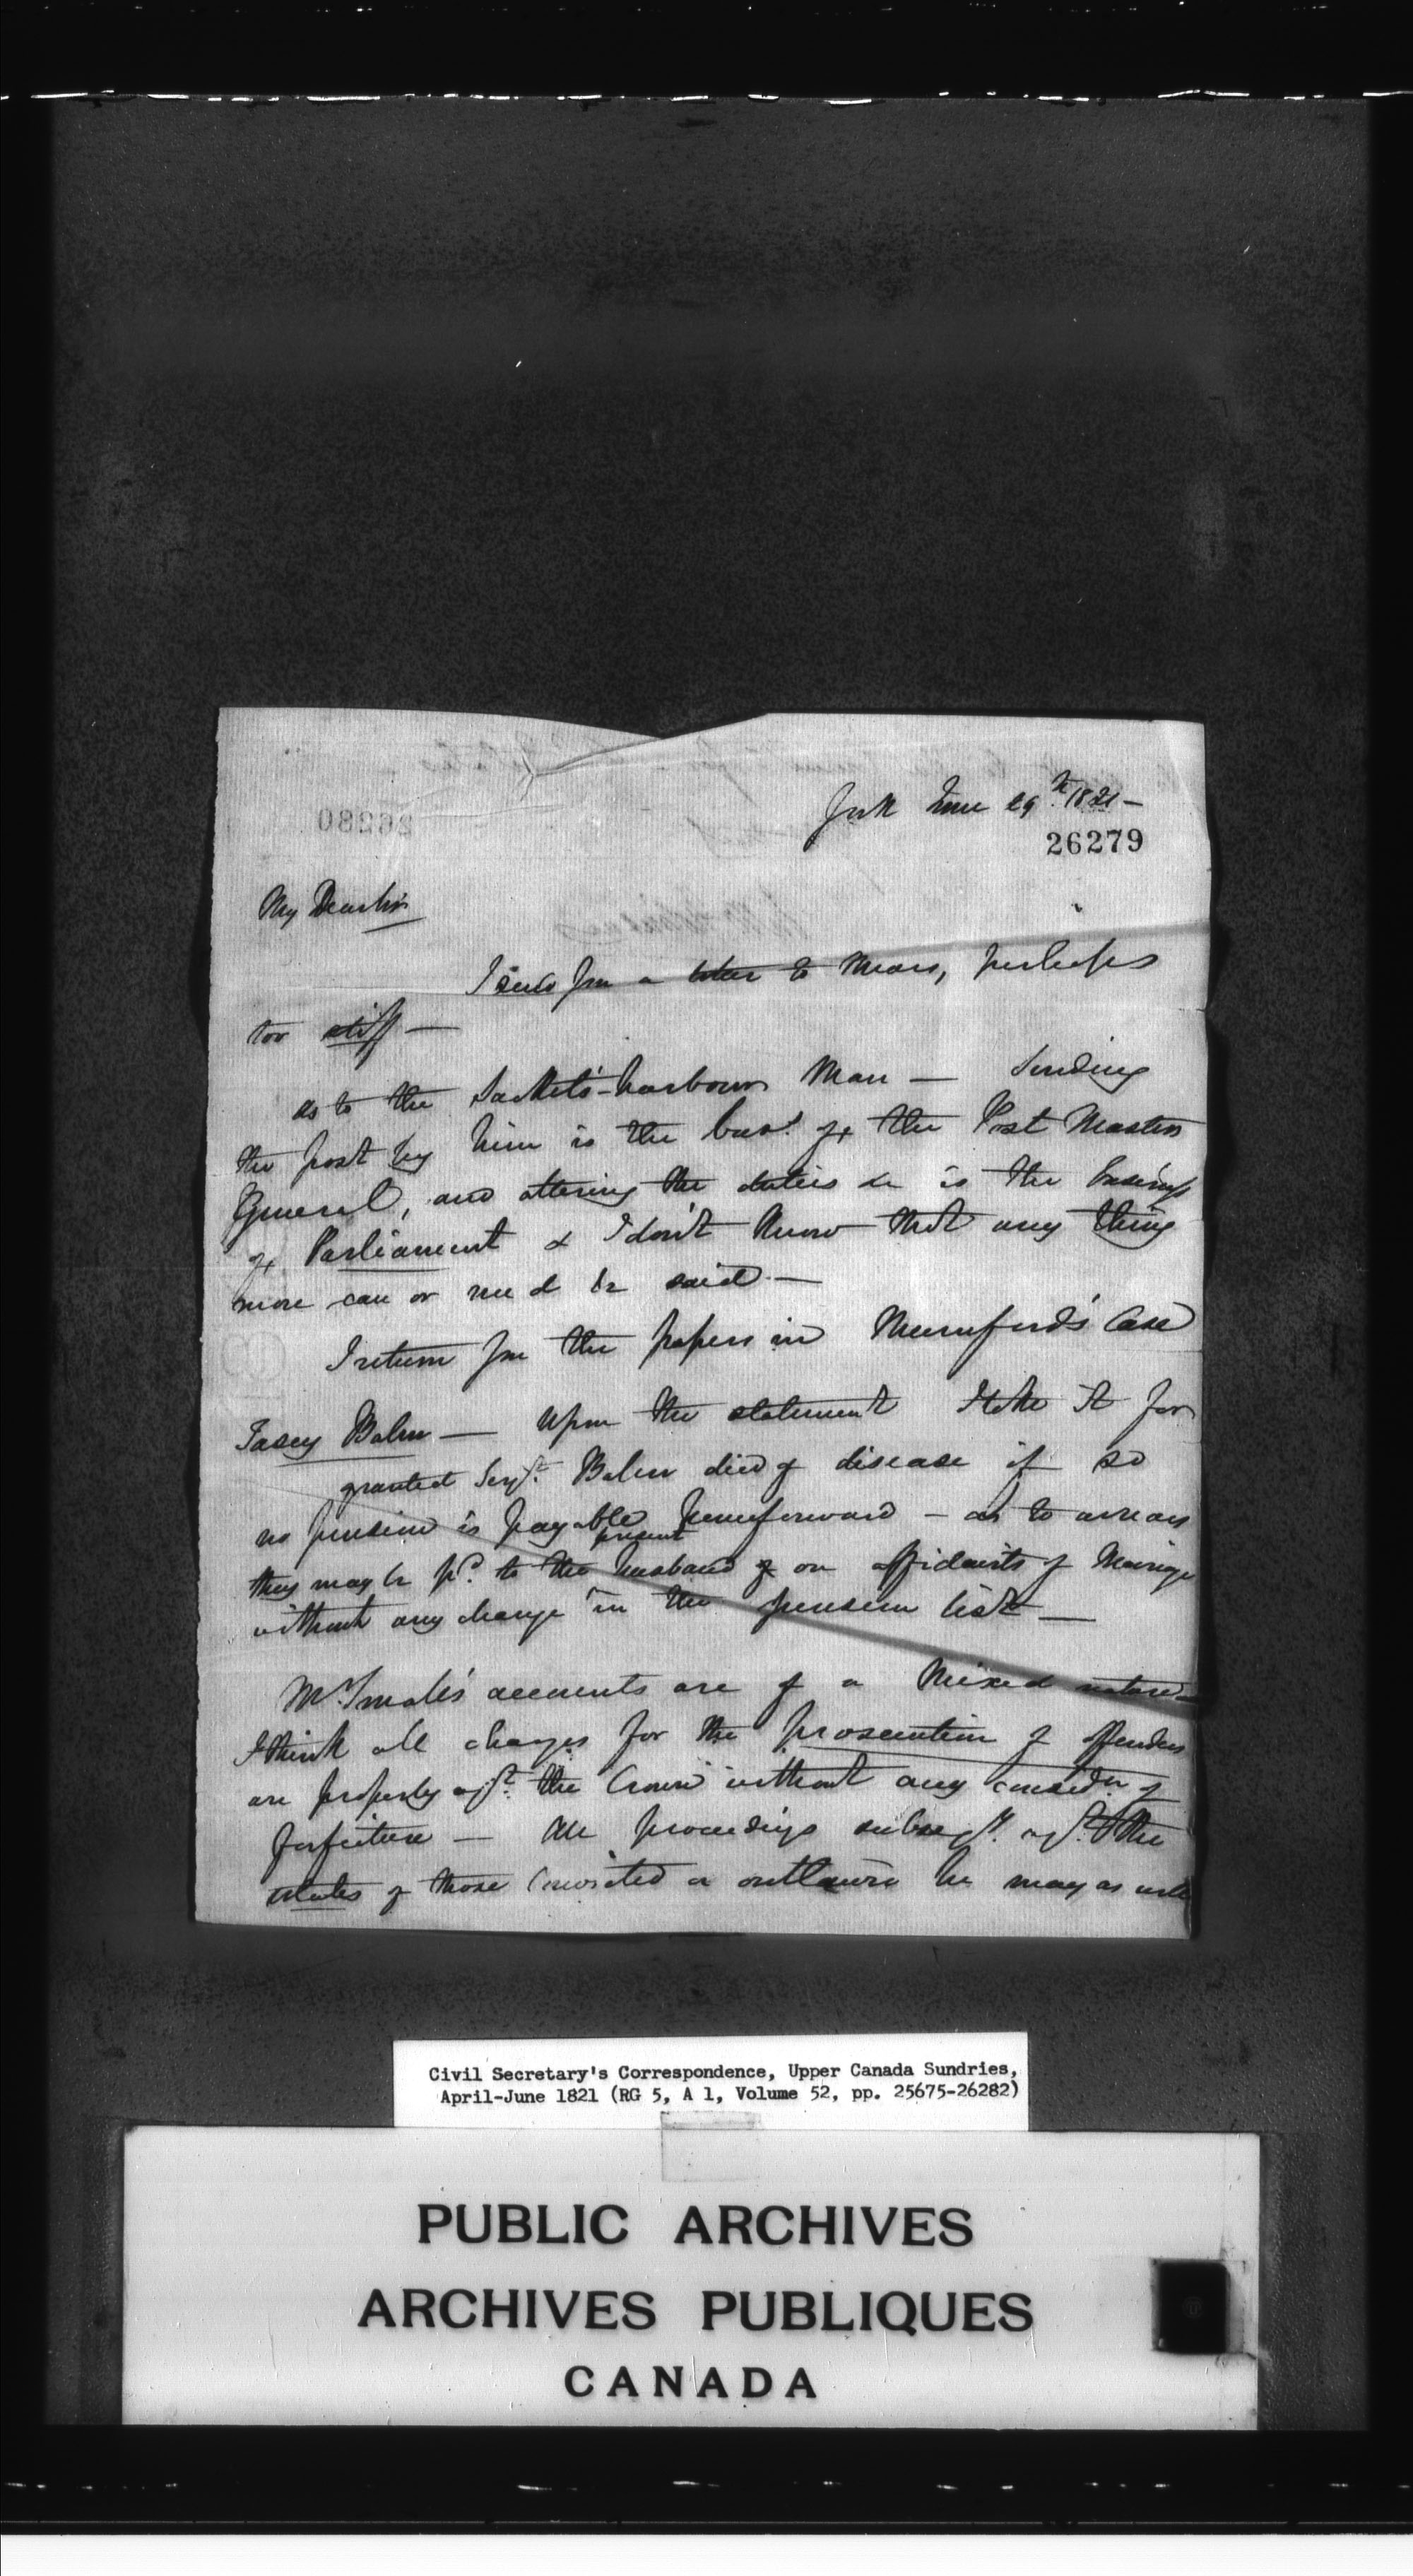 York June 29th 1821 –
26279
26280
My Dear Sir
I send you a letter to Mears, perhaps
too stiff —
as to the Sacket's-harbour Man — Sending
the post by him is the bus. of the Post Master
General, and altering the duties &c is the business
of Parliament & I don't know that any thing
more can or need be said —
I return you the papers in Mumford's Case
Balm — Upon the statement I take it for
granted Serjt. Balm died of disease if so
no pension is payable henceforward – as to arrears
present
they may be pd. to the husband on affidavits of Marriage
without any change in the pension list —
Mr. Small's accounts are of a Mixed nature –
I think all charges for the prosecution of offenders
are properly agst. the Crown without any considn. of
forfeiture — All proceedings subseqt. agst. the
estates of those Convicted or outlawed he may as well
Civil Secretary's Correspondence, Upper Canada Sundries,
April-June 1821 (RG 5, A 1, Volume 52, pp. 25675-26282)
PUBLIC ARCHIVES
ARCHIVES PUBLIQUES
CANADA